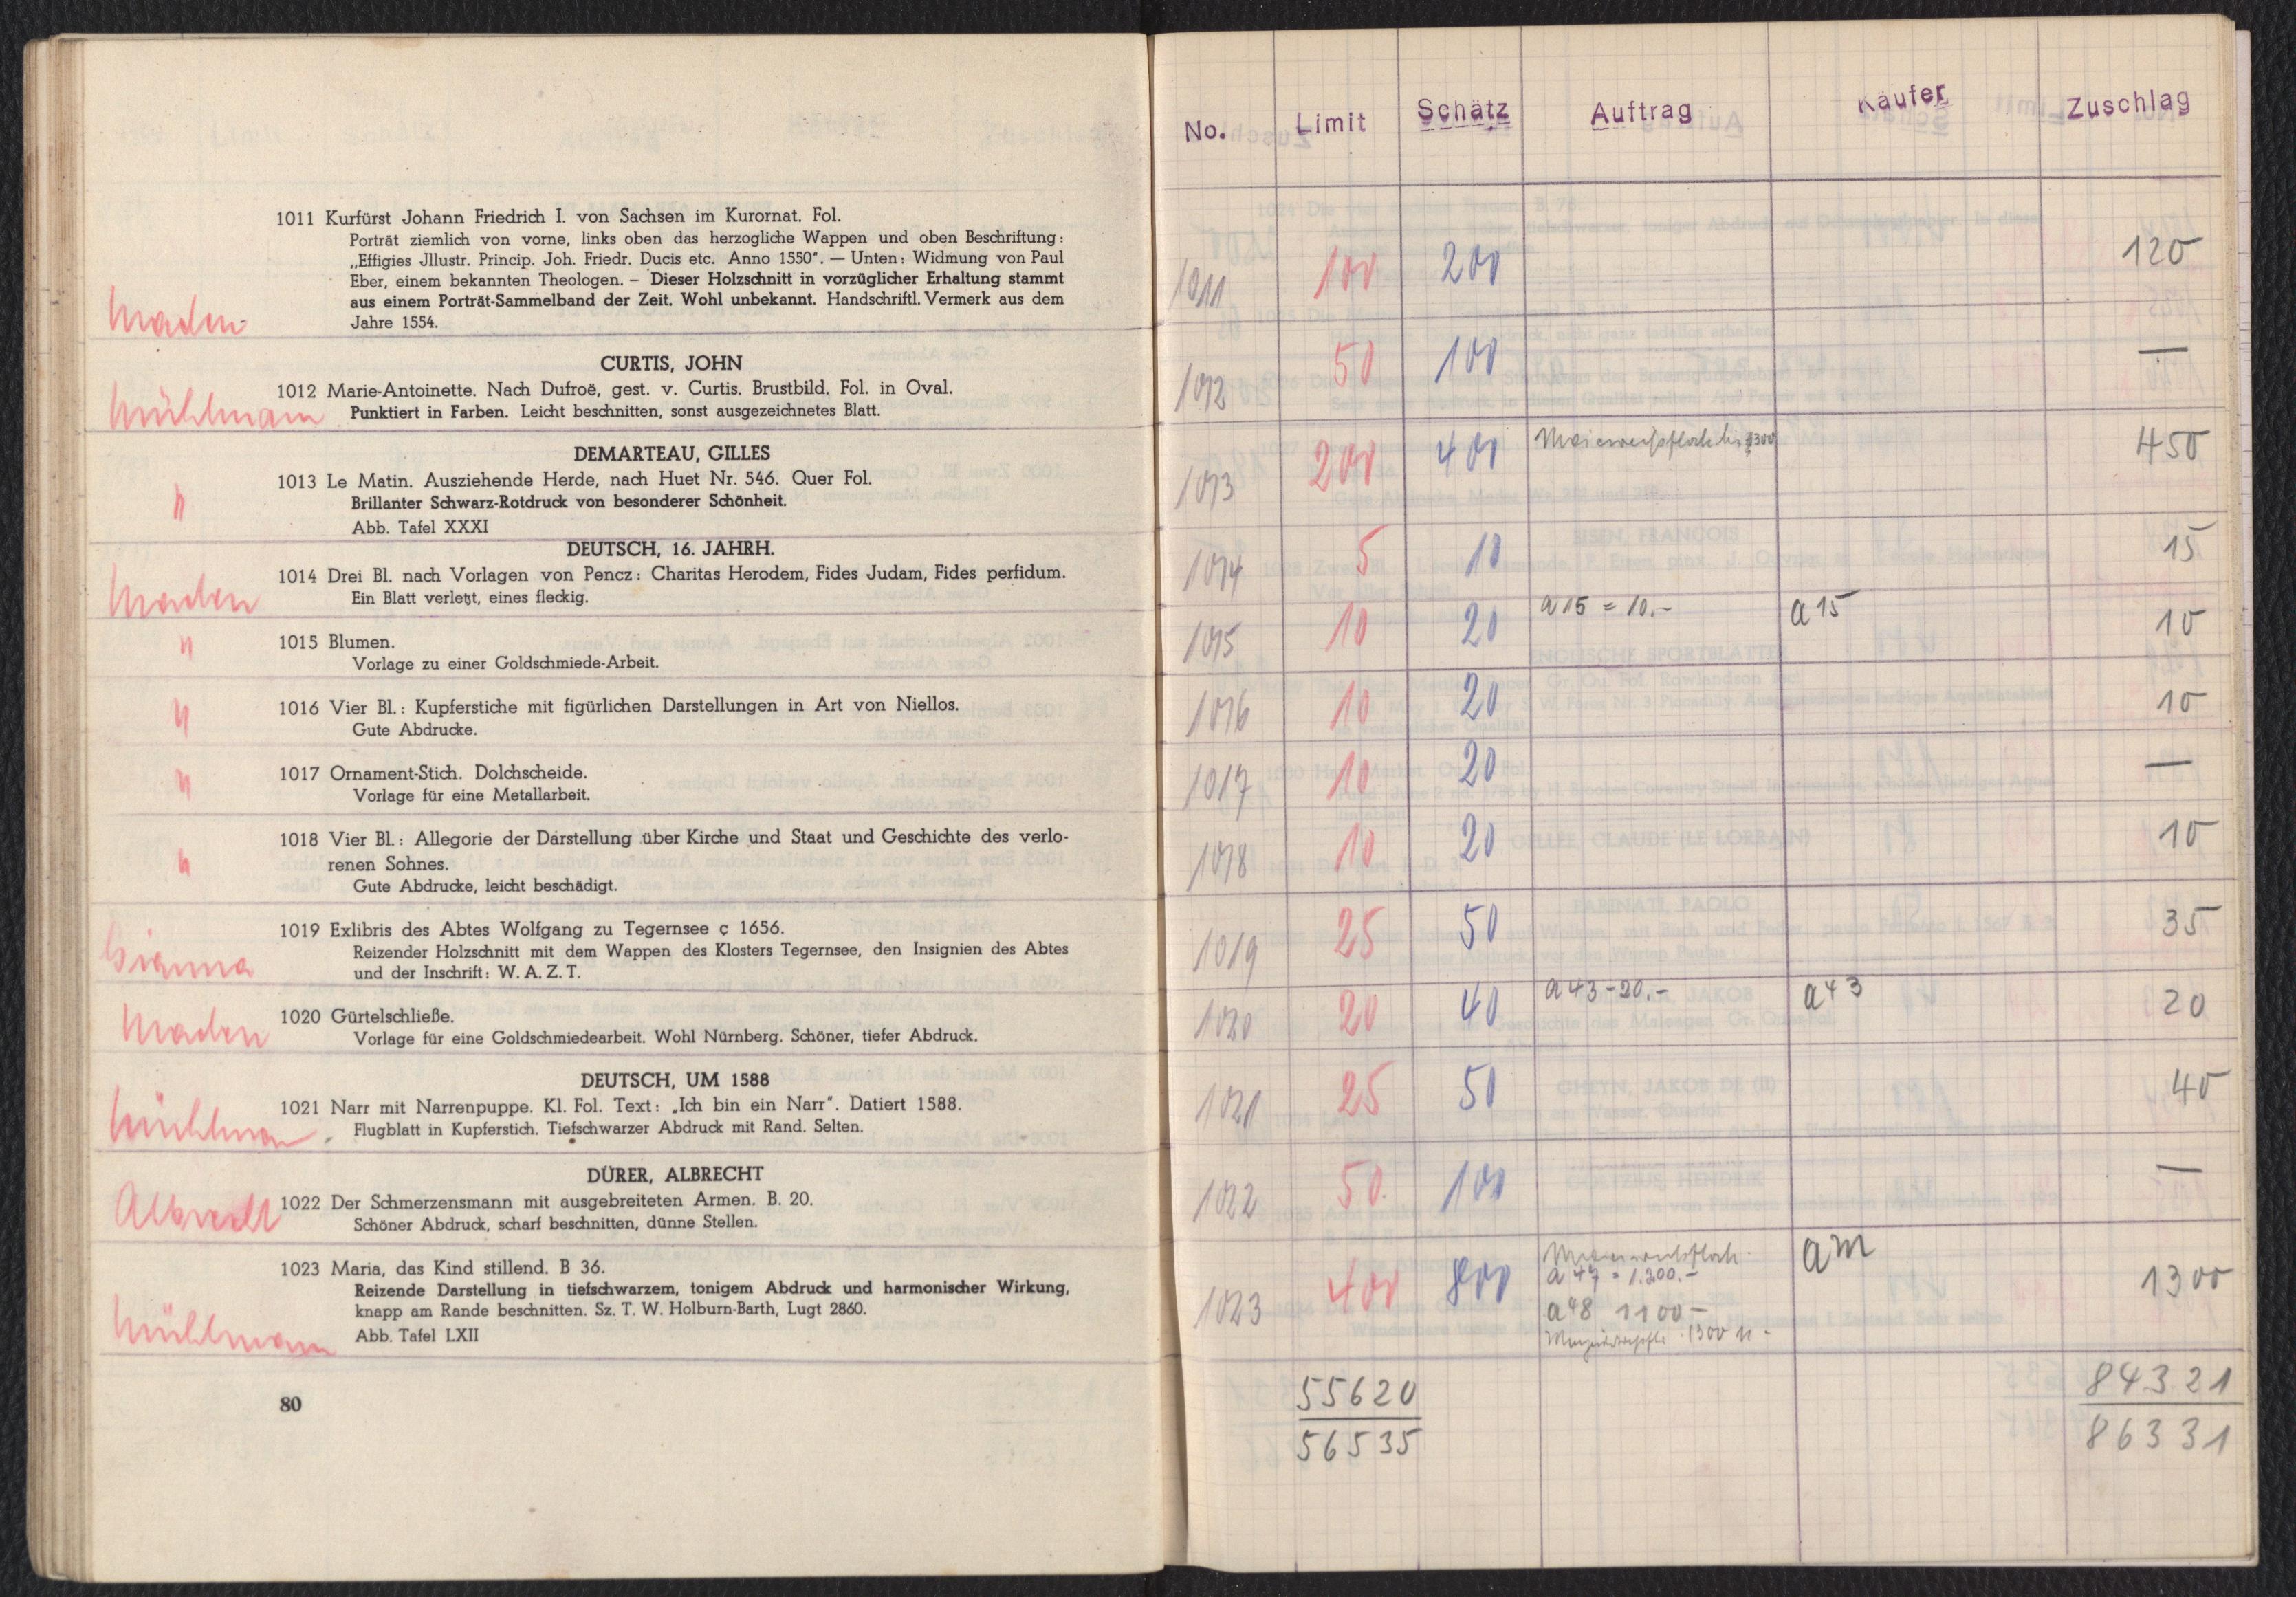 1011 Kurfürst Johann Friedrich I. von Sachsen im Kurornat. Fol.
Porträt ziemlich von vorne, links oben das herzogliche Wappen und oben Beschriftung:
„Effigies Jllustr. Princip. Joh. Friedr. Ducis etc. Anno 1550". — Unten: Widmung von Paul
Eber, einem bekannten Theologen. – Dieser Holzschnitt in vorzüglicher Erhaltung stammt
aus einem Porträt-Sammelband der Zeit. Wohl unbekannt. Handschriftl. Vermerk aus dem
Maden
Jahre 1554.
CURTIS, JOHN
1012 Marie-Antoinette. Nach Dufroë, gest. v. Curtis. Brustbild. Fol. in Oval.
Mühlmann
Punktiert in Farben. Leicht beschnitten, sonst ausgezeichnetes Blatt.
DEMARTEAU, GILLES
1013 Le Matin. Ausziehende Herde, nach Huet Nr. 546. Quer Fol.
" Brillanter Schwarz-Rotdruck von besonderer Schönheit.
Abb. Tafel XXXI
DEUTSCH, 16. JAHRH.
1014 Drei Bl. nach Vorlagen von Pencz: Charitas Herodem, Fides Judam, Fides perfidum.
Maden
Ein Blatt verletzt, eines fleckig.
" 1015 Blumen.
Vorlage zu einer Goldschmiede-Arbeit.
" 1016 Vier Bl.: Kupferstiche mit figürlichen Darstellungen in Art von Niellos.
Gute Abdrucke.
" 1017 Ornament-Stich. Dolchscheide.
Vorlage für eine Metallarbeit.
1018 Vier Bl.: Allegorie der Darstellung über Kirche und Staat und Geschichte des verlo-
" renen Sohnes.
Gute Abdrucke, leicht beschädigt.
1019 Exlibris des Abtes Wolfgang zu Tegernsee ç 1656.
Reizender Holzschnitt mit dem Wappen des Klosters Tegernsee, den Insignien des Abtes
und der Inschrift: W. A. Z. T.
Maden
1020 Gürtelschließe.
Vorlage für eine Goldschmiedearbeit. Wohl Nürnberg. Schöner, tiefer Abdruck.
DEUTSCH, UM 1588
1021 Narr mit Narrenpuppe. Kl. Fol. Text: „Ich bin ein Narr". Datiert 1588.
Mühlmann
Flugblatt in Kupferstich. Tiefschwarzer Abdruck mit Rand. Selten.
DÜRER, ALBRECHT
Albrecht
1022 Der Schmerzensmann mit ausgebreiteten Armen. B. 20.
Schöner Abdruck, scharf beschnitten, dünne Stellen.
1023 Maria, das Kind stillend. B 36.
Reizende Darstellung in tiefschwarzem, tonigem Abdruck und harmonischer Wirkung,
knapp am Rande beschnitten. Sz. T. W. Holburn-Barth, Lugt 2860.
Mühlmann
Abb. Tafel LXII
80
No. Limit Schätz Auftrag Käufer Zuschlag
1011 100 200 120
1012 50 100 —
1013 200 400 1300 450
1014 5 10 15
1015 10 20 a 15 = 10.- a 15 10
1016 10 20 10
1017 10 20 —
1018 10 20 10
1019 25 50 35
1020 20 40 a 43 - 20.- a 43 20
1021 25 50 40
1022 50. 100 —
1023 400 800 am 1300
a 47 = 1.200.-
a 48 1100 -
1300
55620 84321
56535 86331